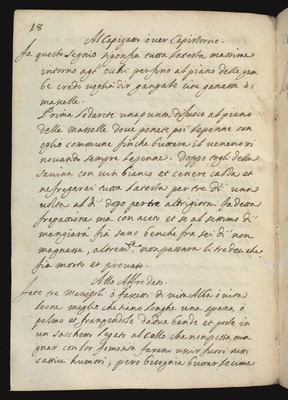 18
Al Capigatti ò ver Capistorno.
Fa questo segnio sgonfia tutta la testa massime
intorno agl'ochi per fino al piano delle gan
be credo veglia dir gangale cioe ganasse ò
masselle.
Prima le darete una punta di fuoco al piano
delle masselle dove ponete poi le penne con
oglio commune finche buttara il venenò ri
novando sempre le penne. Doppo togli della
savina con vin bianco et cenere calda et
ne fregarai tutta la testa per tre dì una
volta al dì dopo per tre altri giorni fa detta
fregasione ma con aceto et se al settimo dì
mangiara fia sano benche fra sei dì non
magnasse, altrem.te non passara li tredeci che
fia morto et provato.
Allo Affredato.
Fate tre Manipoli ò fassetti di vita Alba ò vita
leone meglio che siano longhe una spana ò
palmo et frangendole da due bande et poste in
un sacchetto legati al collo che non possa ma
gnar con lor fomento faranno uscir fuori tutti
cattivi humori, pero bisognia buttar le cime